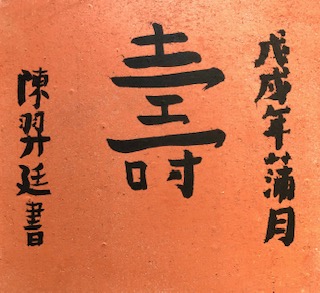 戊戌年蒲月
壽
陳羿廷書